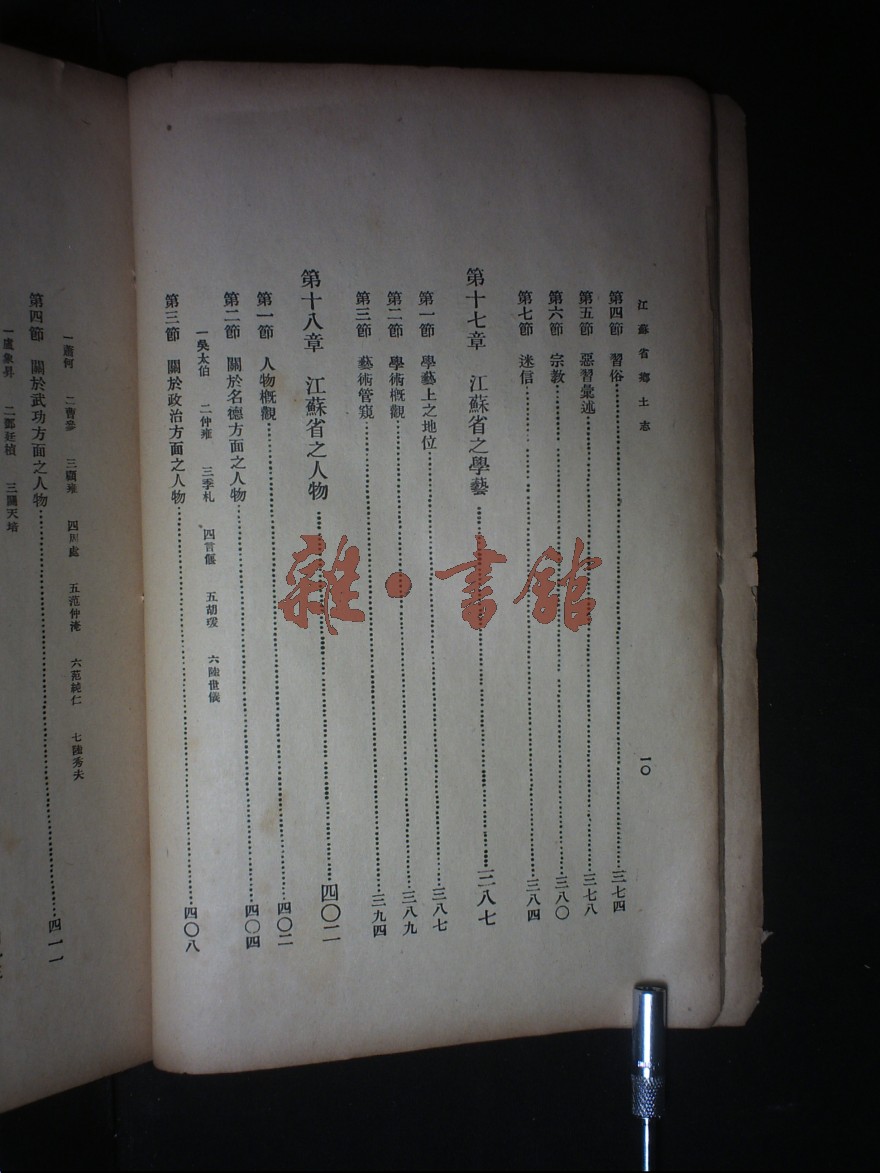 江蘇省鄉土志
一〇
第四節 習俗…………三七四
第五節 惡習彙述…………三七八
第六節 宗教…………三八〇
第七節 迷信…………三八四
第十七章 江蘇省之學藝…………三八七
第一節 學藝上之地位…………三八七
第二節 學術概觀…………三八九
第三節 藝術管窺…………三九四
第十八章 江蘇省之人物…………四〇二
第一節 人物概觀…………四〇二
第二節 關於名德方面之人物…………四〇四
一吳太伯 二仲雍 三季札 四言偃 五胡瑗 六陸世儀
第三節 關於政治方面之人物…………四〇八
一蕭何 二曹參 三顧雍 四周處 五范仲淹 六范純仁 七陸秀夫
第四節 關於武功方面之人物…………四一一
一盧象昇 二鄧廷楨 三關天培
雜·書館